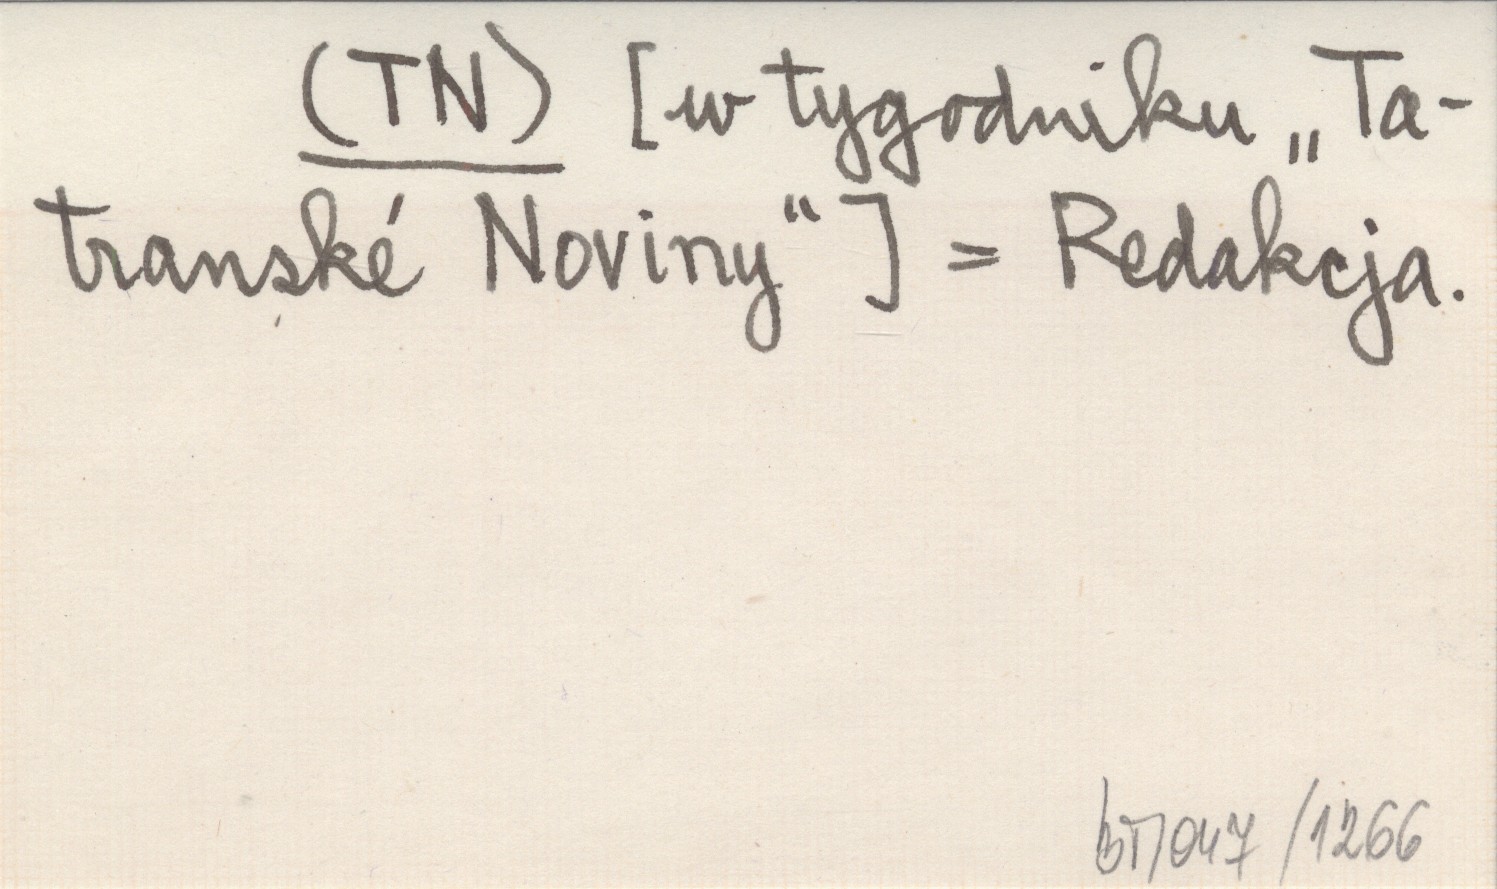 (TN) [w tygodniku „Ta-
transké Noviny“] = Redakcja.
bT/047/1266